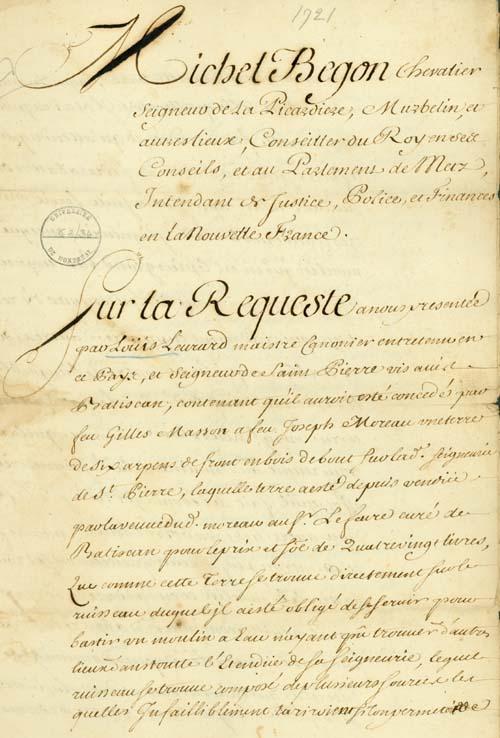 1721
Michel Begon Chevalier
Seigneur de la Picardiere, Murbelin, et
autres lieux, Conseiller du Roy en ses
Conseils, et au Parlement de Metz,
Intendant de Justice, Police, et Finances
en la Nouvelle France.
UNIVERSITÉ
DE MONTRÉAL
Sur la Requeste a nous presentée
par Loüis Leurard maistre Canonier entretenu en
ce Pays, et Seigneur de Saint Pierre vis avis
Batiscan, contenant qu'il auroit esté concedés par
feu Gilles Masson a feu Joseph Moreau une terre
de six arpens de front en bois de bout sur lad. Seigneurie
de St. Pierre, laquelle terre a esté depuis vendüe
par la veuve dud. moreau au Sr. Le febvre curé de
Batiscan pour le prix et so͞e de Quatre vingt livres,
Que comme cette Terre se trouve directement sur le
ruisseau duquel il a esté obligé de se servir pour
bastir un moulin a Eau n'ayant que trouver d'autres
lieux dans toutte l'Etendüe de sa Seigneurie, lequel
ruisseau se trouve composé de plusieurs sources les
quelles Infailliblement tariroient si l'on permettoit